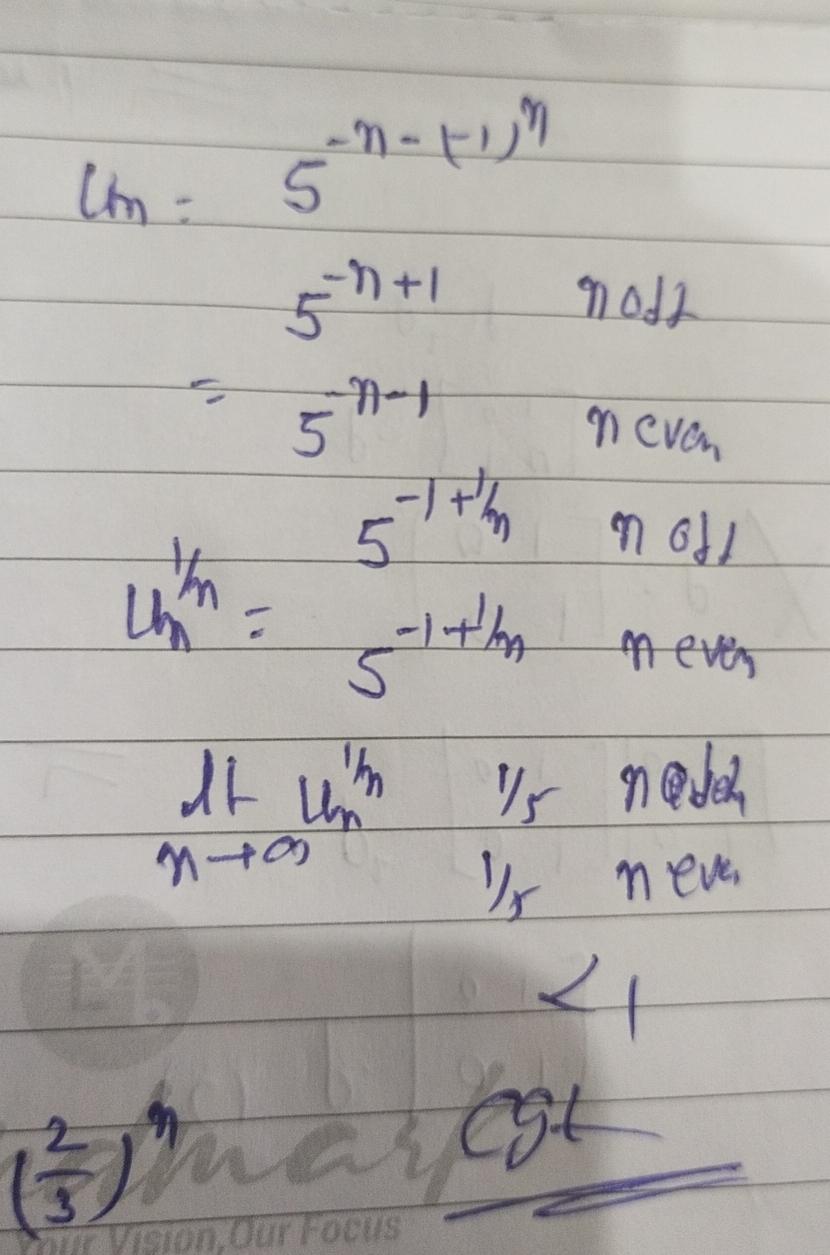 Un = 5^{-n-(-1)^n}
5^{-n+1} n odd
= 5^{-n-1} n even
5^{-1+1/n} n odd
Un^{1/n} = 5^{-1+1/n} n even
lt Un^{1/n} 1/5 n odd
n→∞ 1/5 n eve
< 1
(2/3)^n cgt
Your Vision, Our Focus